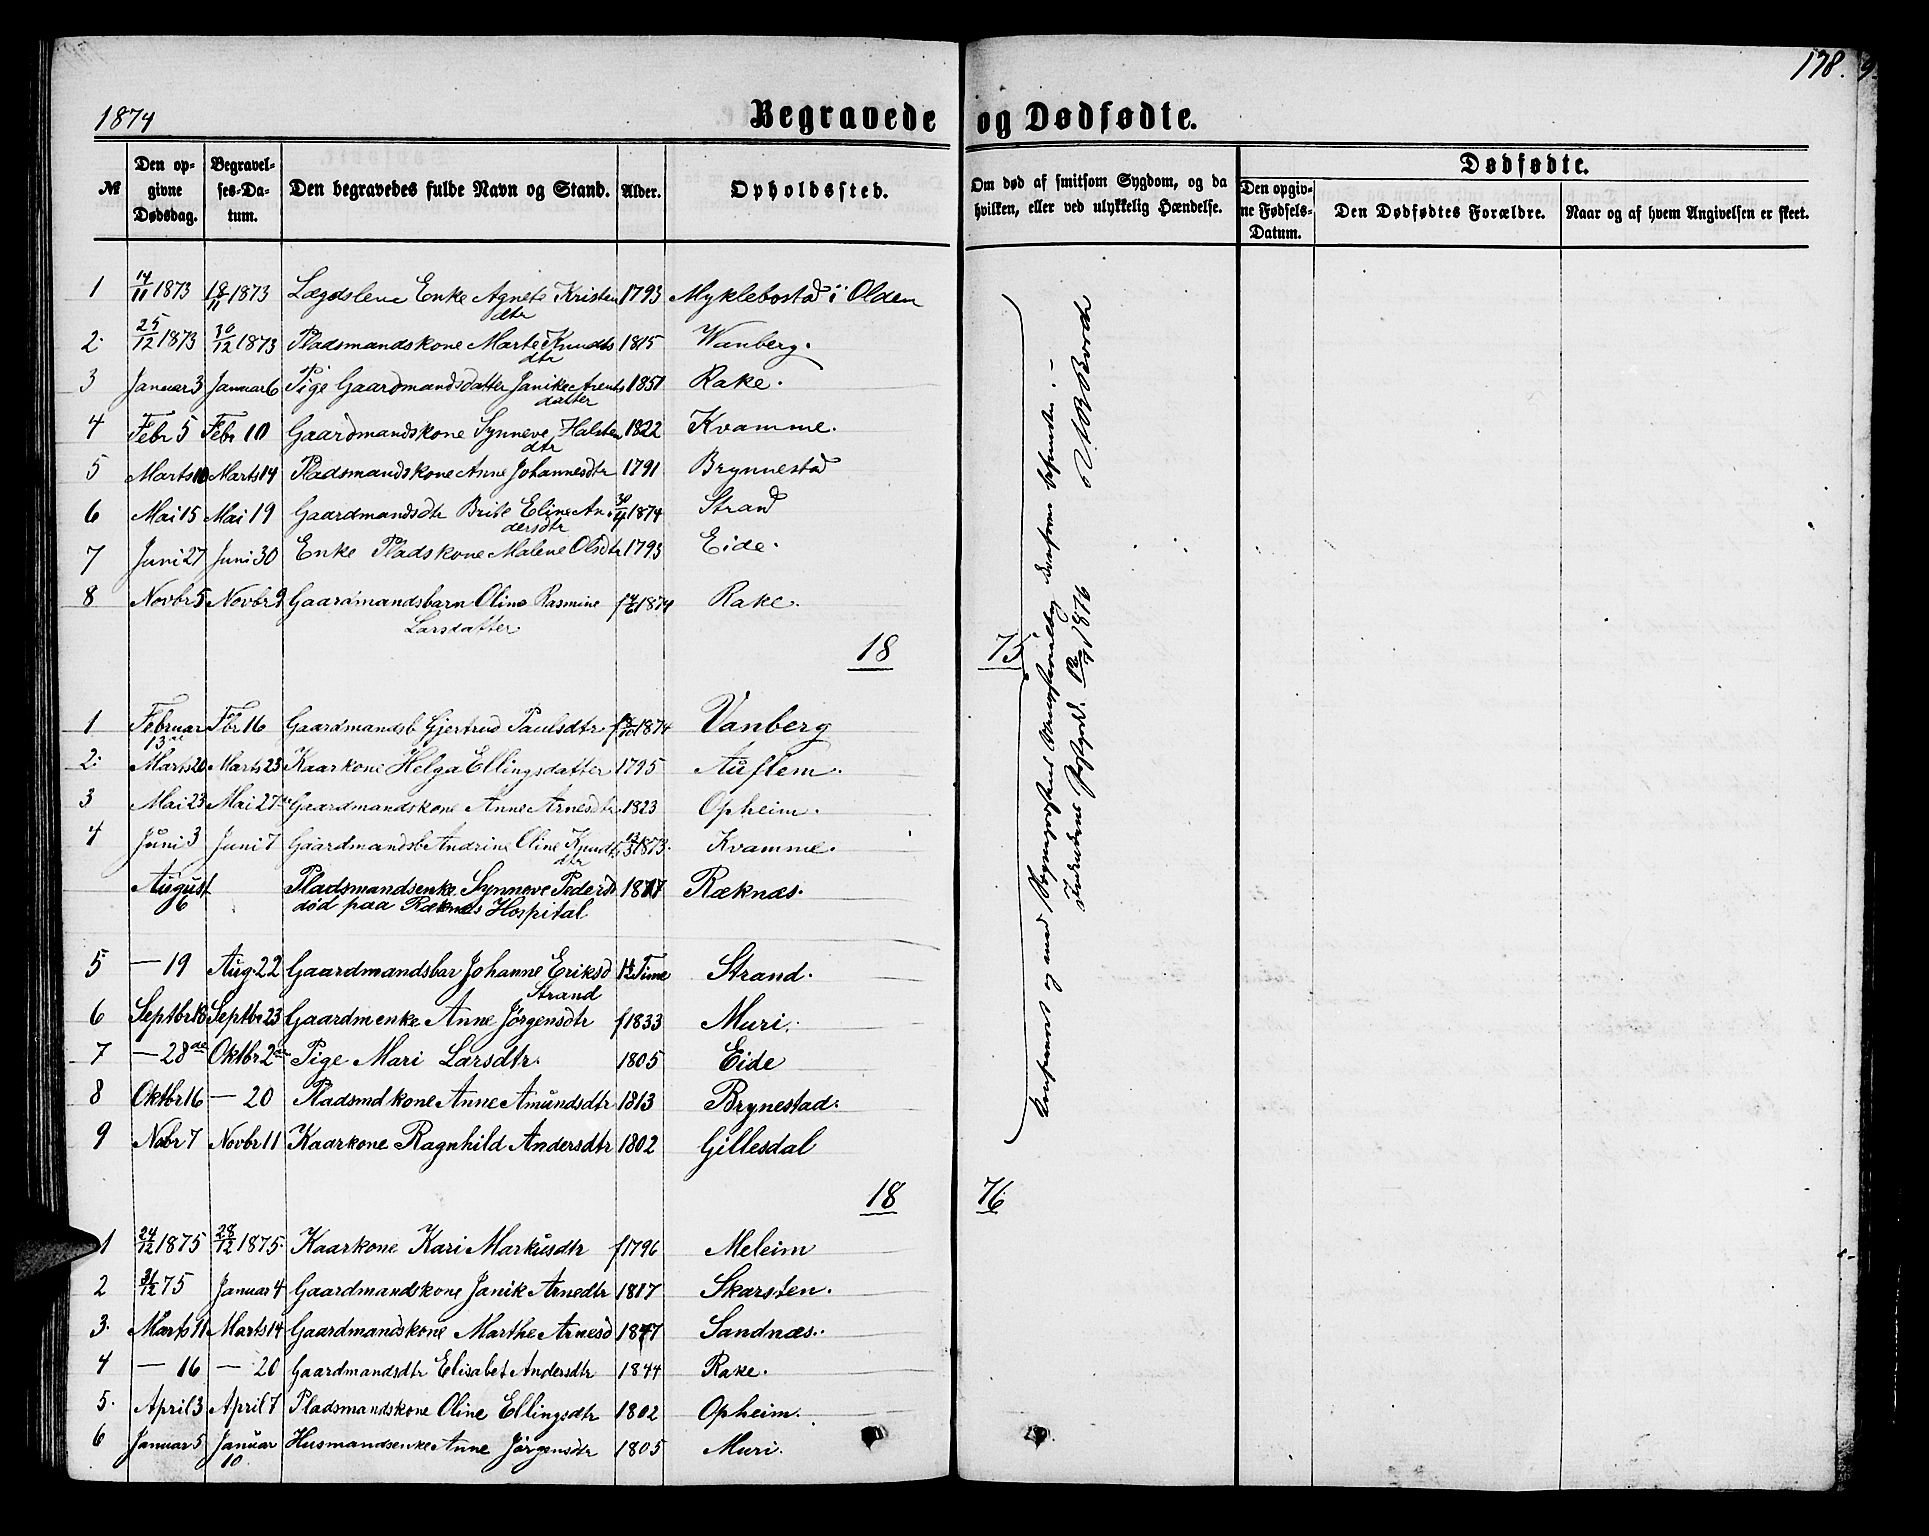 178.
1874
Begravede og Dødfødte.
№ Den op- givne Dødsdag. Begravel- ses-Da- tum. Den begravedes fulde Navn og Stand. Alder. Opholdssted. Om død af smitsom Sygdom, og da hvilken, eller ved ulykkelig Hændelse. Dødfødte. Den opgiv- ne Fødsels- Datum. Den Dødfødtes Forældre. Naar og af hvem Angivelsen er skeet.
1 14/11 1873 18/11 1873 Lægdslem Enke Agnete Kristen 1793 Myklebostad i Olden
dtr
2. 25/12 1873 30/12 1873 Pladsmandskone Marte Knuds 1815 Wanberg.
dtr
3 Januar 3 Januar 6 Pige Gaardmandsdatter Janike Arents 1851 Rake.
datter
4 Febr 5 Febr 10 Gaardmandskone Synneve Halsten 1822 Kvamme.
dtr
5 Marts 10 Marts 14 Pladsmandskone Anne Johannesdtr 1791 Brynnestad
6 Mai 15 Mai 19 Gaardmandsdtr Brite Eline An 1874 Strand
dersdtr
7 Juni 27 Juni 30 Enke Pladskone Malene Olsdtr 1793 Eide.
8 Novbr 5 Novbr 9 Gaardmandsbarn Oline Rasmine 1874 Rake.
Larsdatter
18 75
1 Februar Fbr 16 Gaardmandsb Gjertrud Paulsdtr 1874 Vanberg
13de
2. Marts 20 Marts 23 Kaarkone Helga Ellingsdatter 1795 Auflem.
3 Mai 23 Mai 27 Gaardmandskone Anne Arnesdtr 1823 Opheim.
4 Juni 3 Juni 7 Gaardmandsb Andrine Oline Knuds 13/3 1873. Kvamme.
dtr
August Pladsmandsenke Synnøve Pedersd 1817 Ræknæs.
6 død paa Reknæs Hospital
5 — 19 Aug. 22 Gaardmandsbar Johanne Eriksd Time Strand.
Strand
6 Septbr 18 Septbr 23 Gaardmenke Anne Jørgensdtr f 1833 Muri.
7 — 28de Oktbr 2 Pige Mari Larsdtr. 1805 Eide
8 Oktbr 16 — 20 Pladsmdkone Anne Amundsdtr 1813 Brynestad.
9 Nobr 7 Novbr 11 Kaarkone Ragnhild Andersdtr 1802 Gillesdal
18 76
1 24/12 1875 28/12 1875 Kaarkone Kari Markusdtr f 1796 Meleim
2 31/12 75 Januar 4 Gaardmandskone Janik Arnedtr 1817 Skarsten.
3. Marts 11 Marts 14 Gaardmandskone Marthe Arnesd 1847 Sandnæs.
4 — 16 — 20 Gaardmandsdtr Elisabet Andersdtr 1844 Rake.
5. April 3 April 7 Pladsmandskone Oline Ellingsdtr 1802 Opheim.
6 Januar 5 Januar Husmandsenke Anne Jørgensdtr 1805 Muri.
10
Konfereret og med Sogneprestens Ministerialbog
Indvikens Prestgjeld 1876